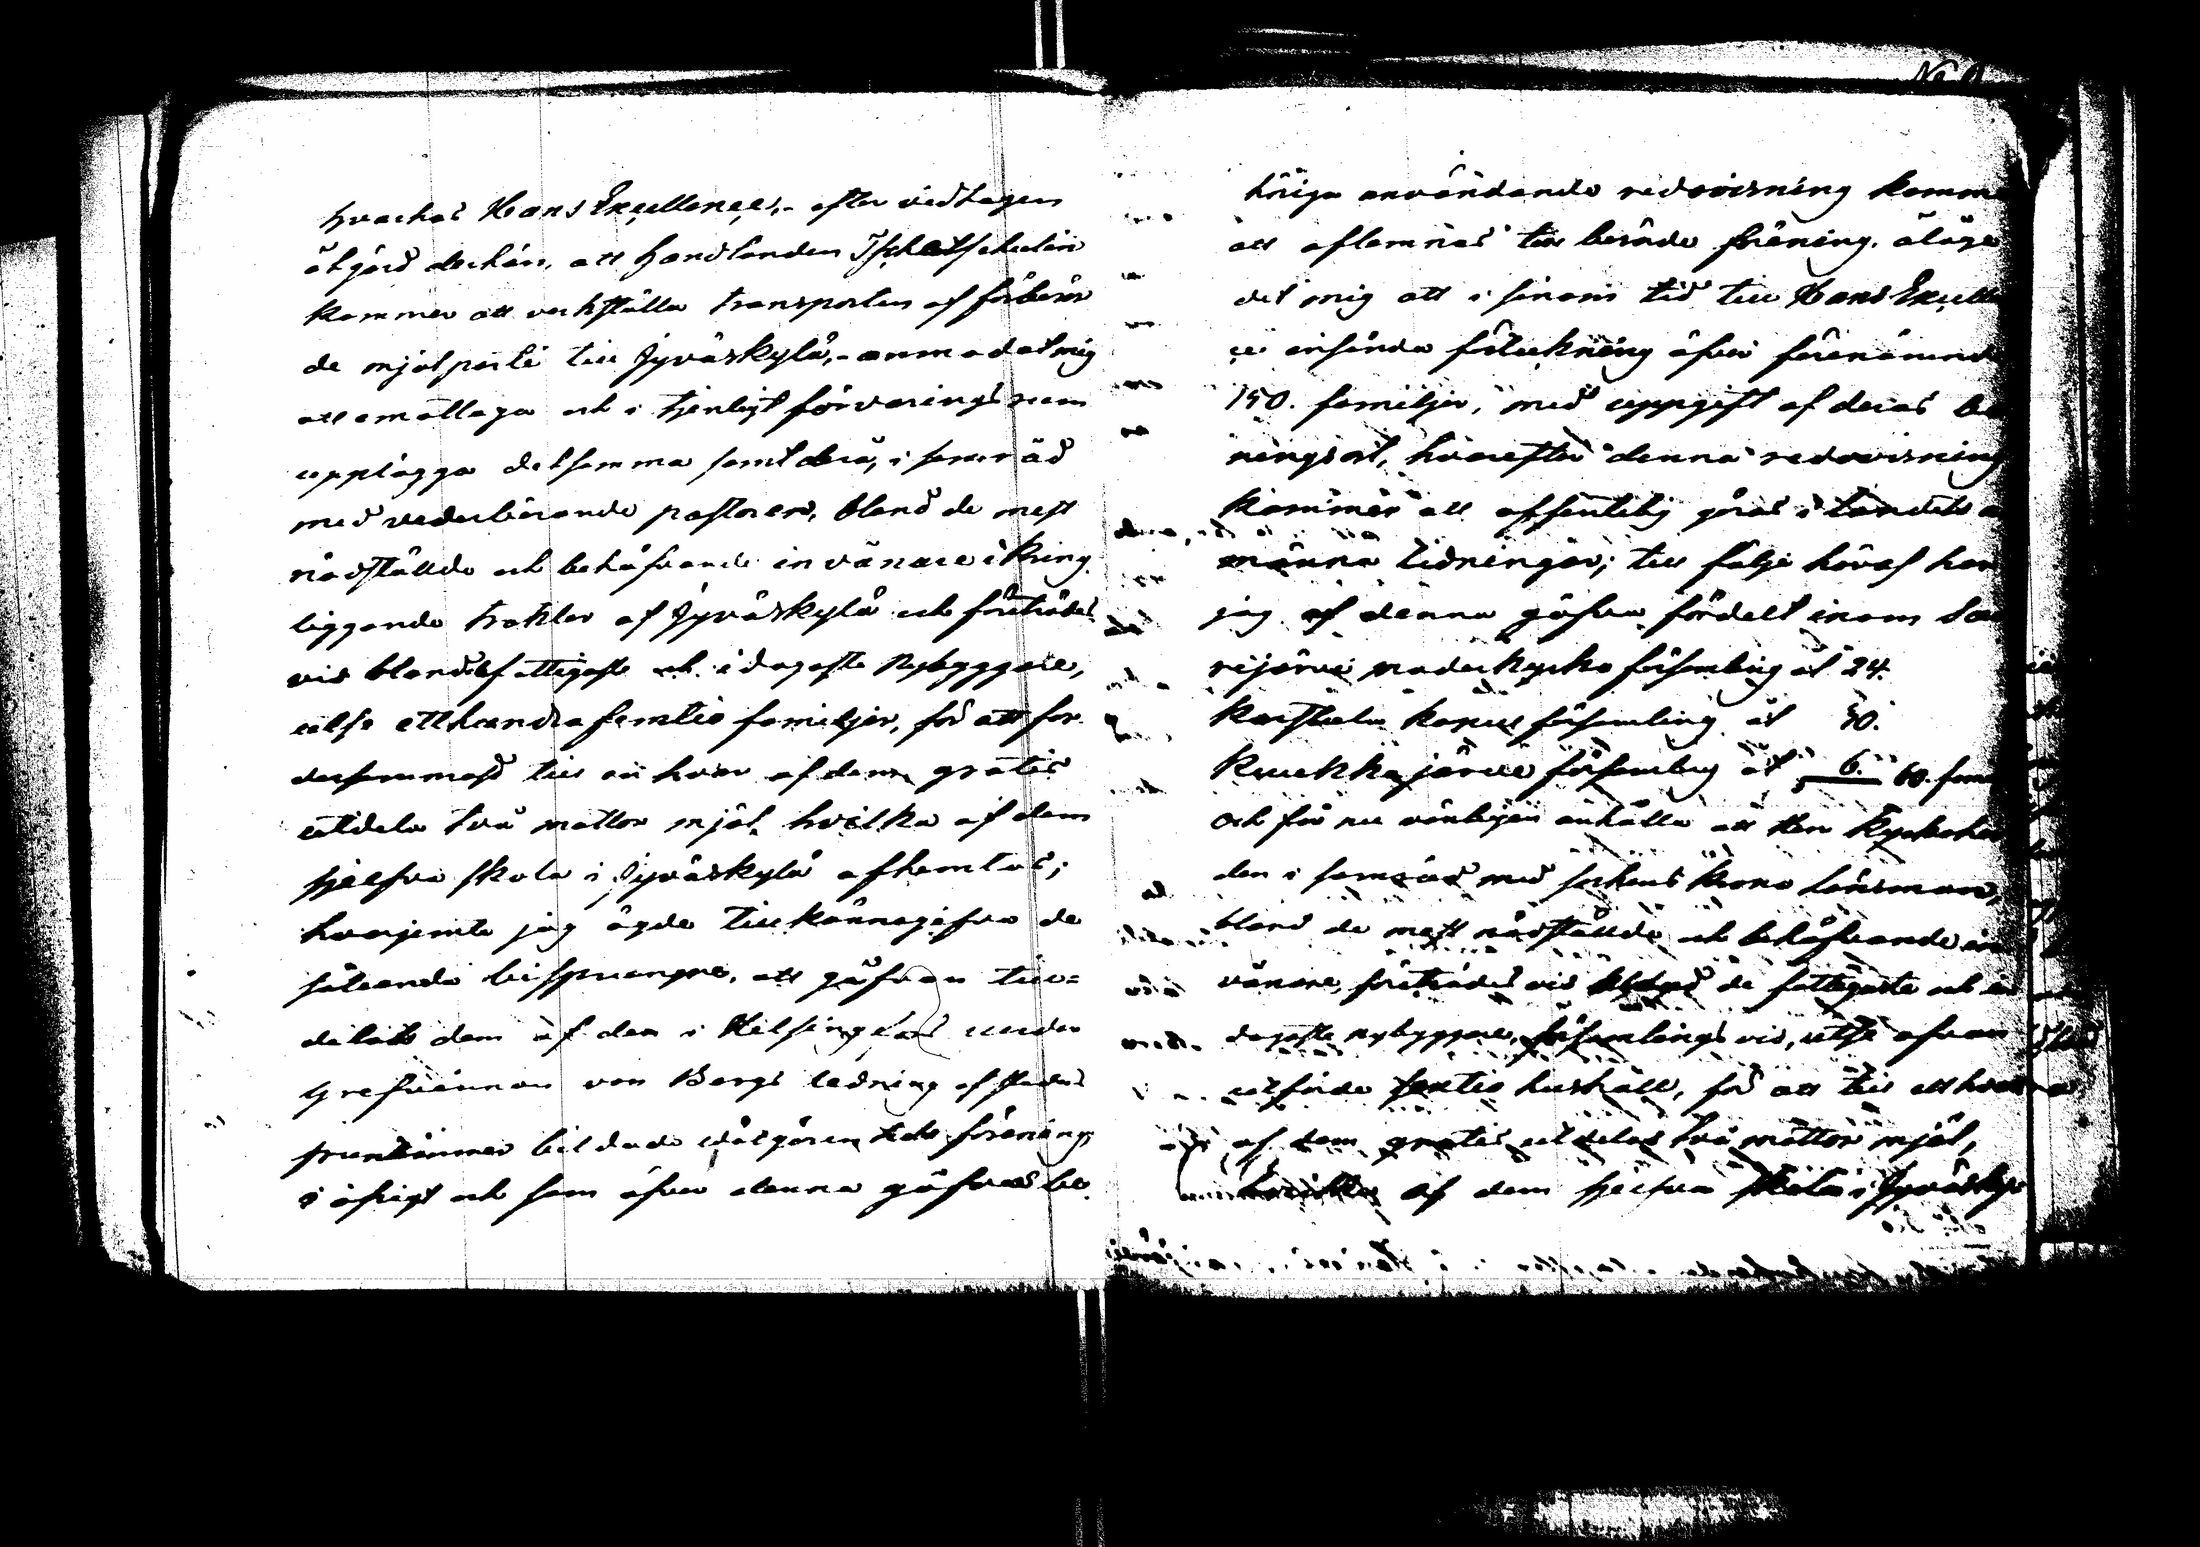 hvarhos Hans Excellence, - efter vedtagen
åtgärd derhän, att handlanden Tschetschulin
kommer att verkställa transporten af förberör
de mjölparti till Jyväskylä, - anmodat mig
att emottaga och i tjenligt förvaringsrum
upplägga detsamma samt dera, i samråd
med vederbörande pastorer, bland de mest
nödställde och behöfvande invånare i kring
liggande trakter af Jyväskylä och företrädes
vis bland de fattigaste och idogaste Nybyggare,
utse etthundrafemtio familjer, för att för
dessemmast till en hvar af dem gratis
utdela två mattor mjöl, hvilka af dem
sjelfva skola i Jyväskylä afhemtas;
hvarjemte jag ägde tillkännagifva de
sålunda bisprungne, att gåfvan till=
delats dem af den i Helsingfors under
Grefvinnan von Bergs ledning af stadens
fruntimmer bildade välgörenhets förening
i öfrigt och som öfver denna gåfvas be
höriga användande redovisning komme
att aflemnas till berörde förening, ålåge
det mig att i sinom tid till Hans Excelle
ce insända förteckning öfver förenämnde
150. familjer, med uppgift af deras bo
ningsort, hvarefter denna redovisning
kommer att offentlig göras i landets a
männa tidningar; till följe häraf har
jag af denna gåfva fördelt inom Saa
rijärvi moderkyrko församling åt 24.
Karstula kapell församling åt 30.
Kuukkajärvi församling åt 6. 60. fam
Och får nu vänligen anhålla att Herr Kyrkoher
den i samråd med sockens Krono länsman,
bland de mest nödställde och behöfvande in
vånare, företrädes vis bland de fattigaste och i
dogaste nybyggare, församlings vis, utse ofvan
utförde sextio hushåll, för att till ett hvart
af dem gratis utdelas två mattor mjöl,
hvilka af dem sjelfva skola i Jyväskylä